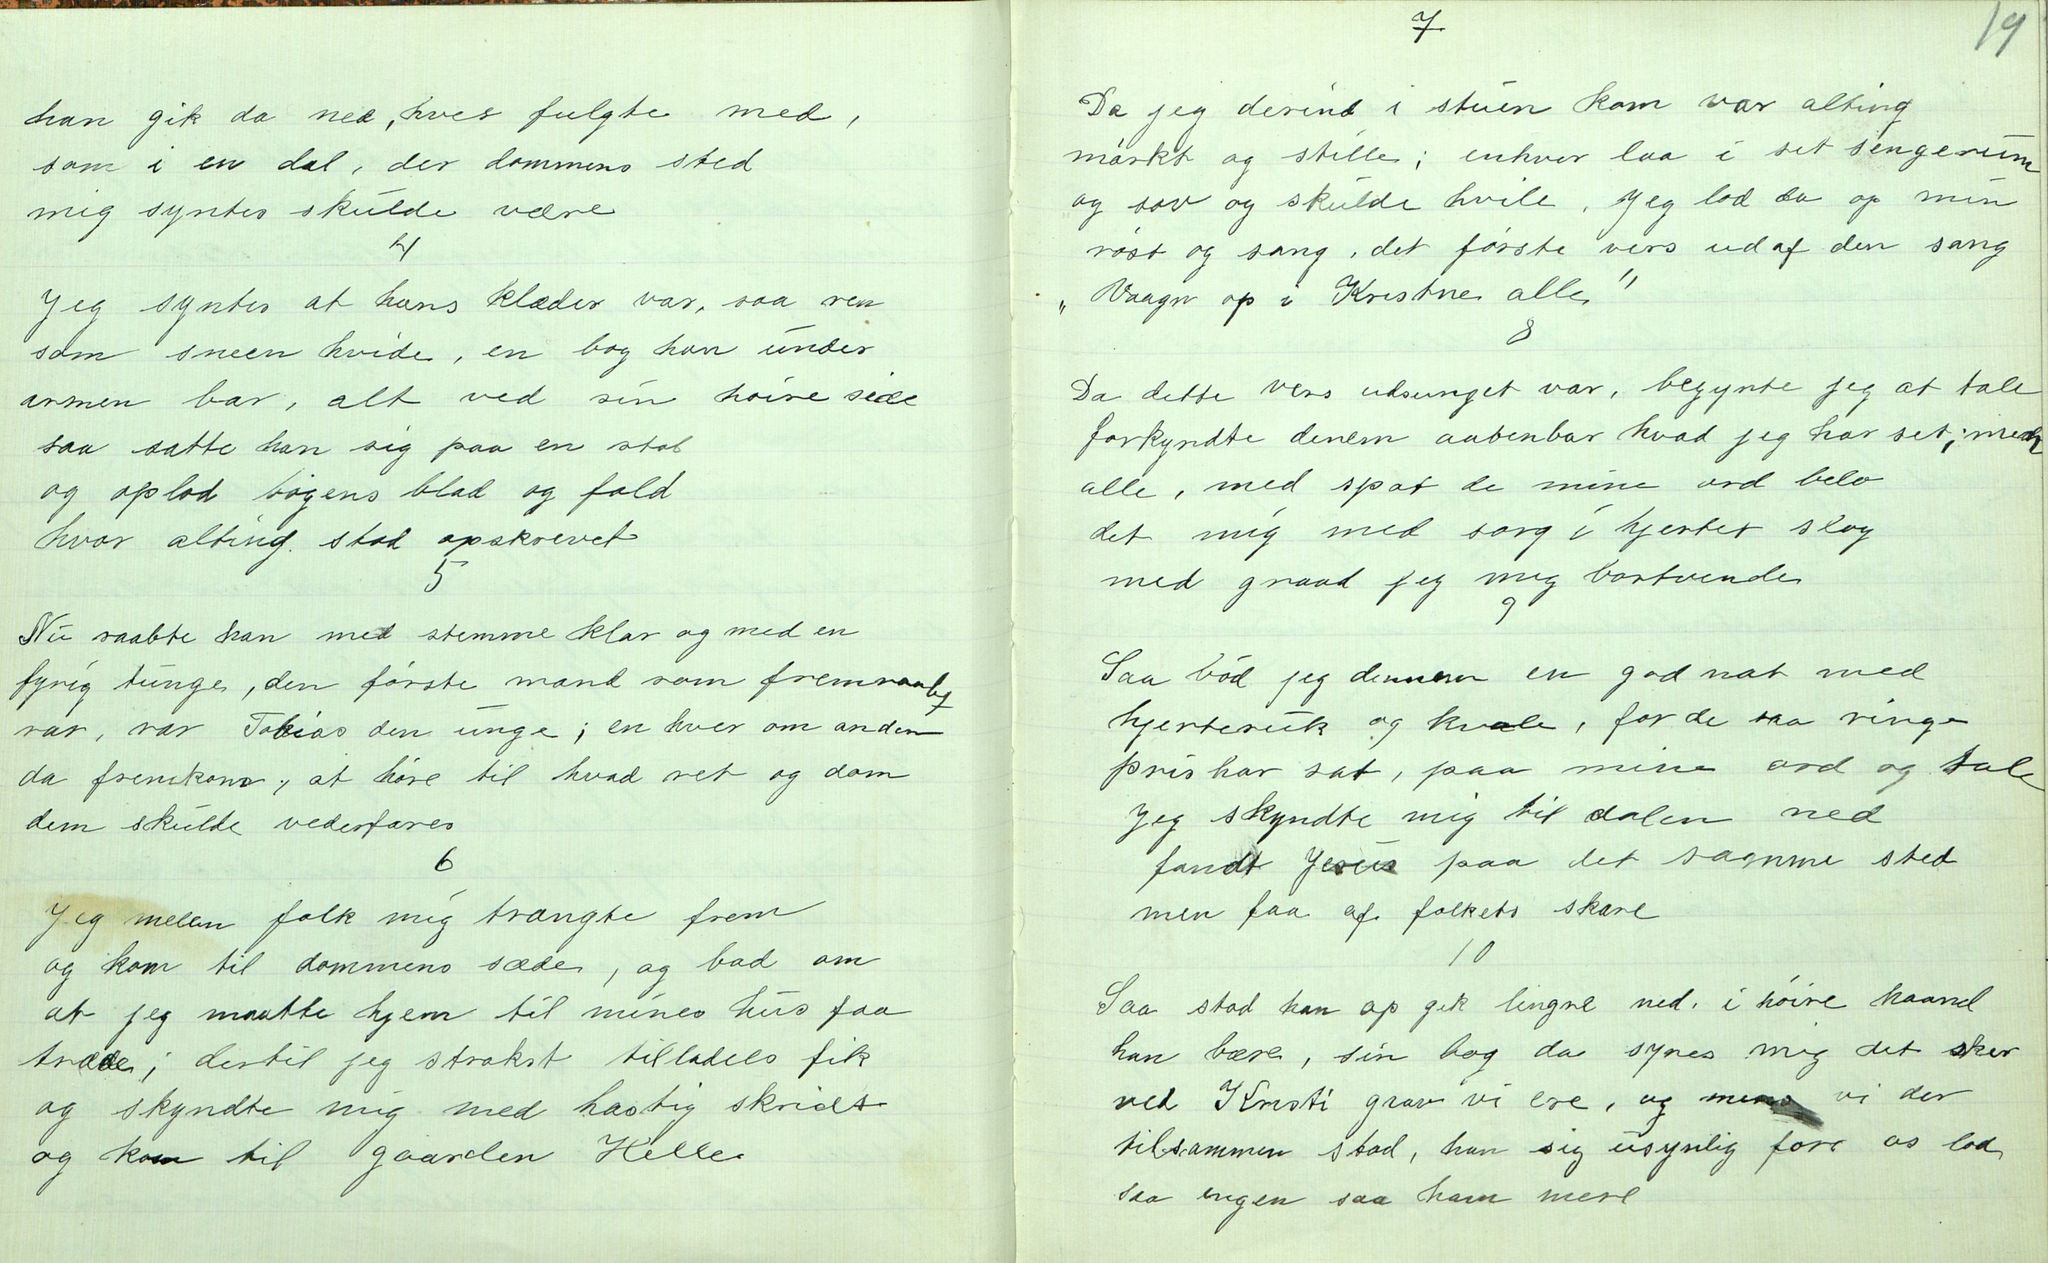 han gik da ned, hver fulgte med,
som i en dal, der dommens sted
mig syntes skulde være
4
Jeg syntes at hans klæder var, saa ren
som sneen hvide, en bog han under
armen bar, alt ved sin høire side
saa satte han sig paa en stol
og oplod bogens blad og fold
hvor alting stod opskrevet
5
Nu raabte han med stemme klar og med en
fyrig tunge, den første mand som fremraabt
var, var Tobias den unge; en hver om anden
da fremkom, at høre til hvad ret og dom
dem skulde vederfares
6
Jeg mellem folk mig trængte frem
og kom til dommens sæde, og bad om
at jeg maatte hjem til mines hus faa
træde; dertil jeg strakst tilladels fik
og skyndte mig med hastig skridt
og kom til gaarden Helle
7
19
Da jeg derind i stuen kom var alting
mørkt og stille; enhver laa i set sengerum
og sov og skulde hvile. Jeg lod da op min
røst og sang, det første vers ud af den sang
„Vaagn op i Kristne alle"
8
Da dette vers udsunget var, begynte jeg at tale
forkyndte denem aabenbar hvad jeg har set; men
alle, med spot de mine ord belo
det mig med sorg i hjertet slog
med graad jeg mig bortvende
9
Saa bød jeg dennem en god nat med
hjertesuk og kvale, for de saa ringe
pris har sat, paa mine ord og tale
Jeg skyndte mig til dalen ned
fandt Jesus paa det samme sted
men faa af folkets skare
10
Saa stod han op gik lingre ned, i høire haand
han bære, sin bog da synes mig det sker
ved Kristi grav vi ere, og mens vi der
tilsammen stod, han sig usynlig fore os lod
saa ingen saa ham mere